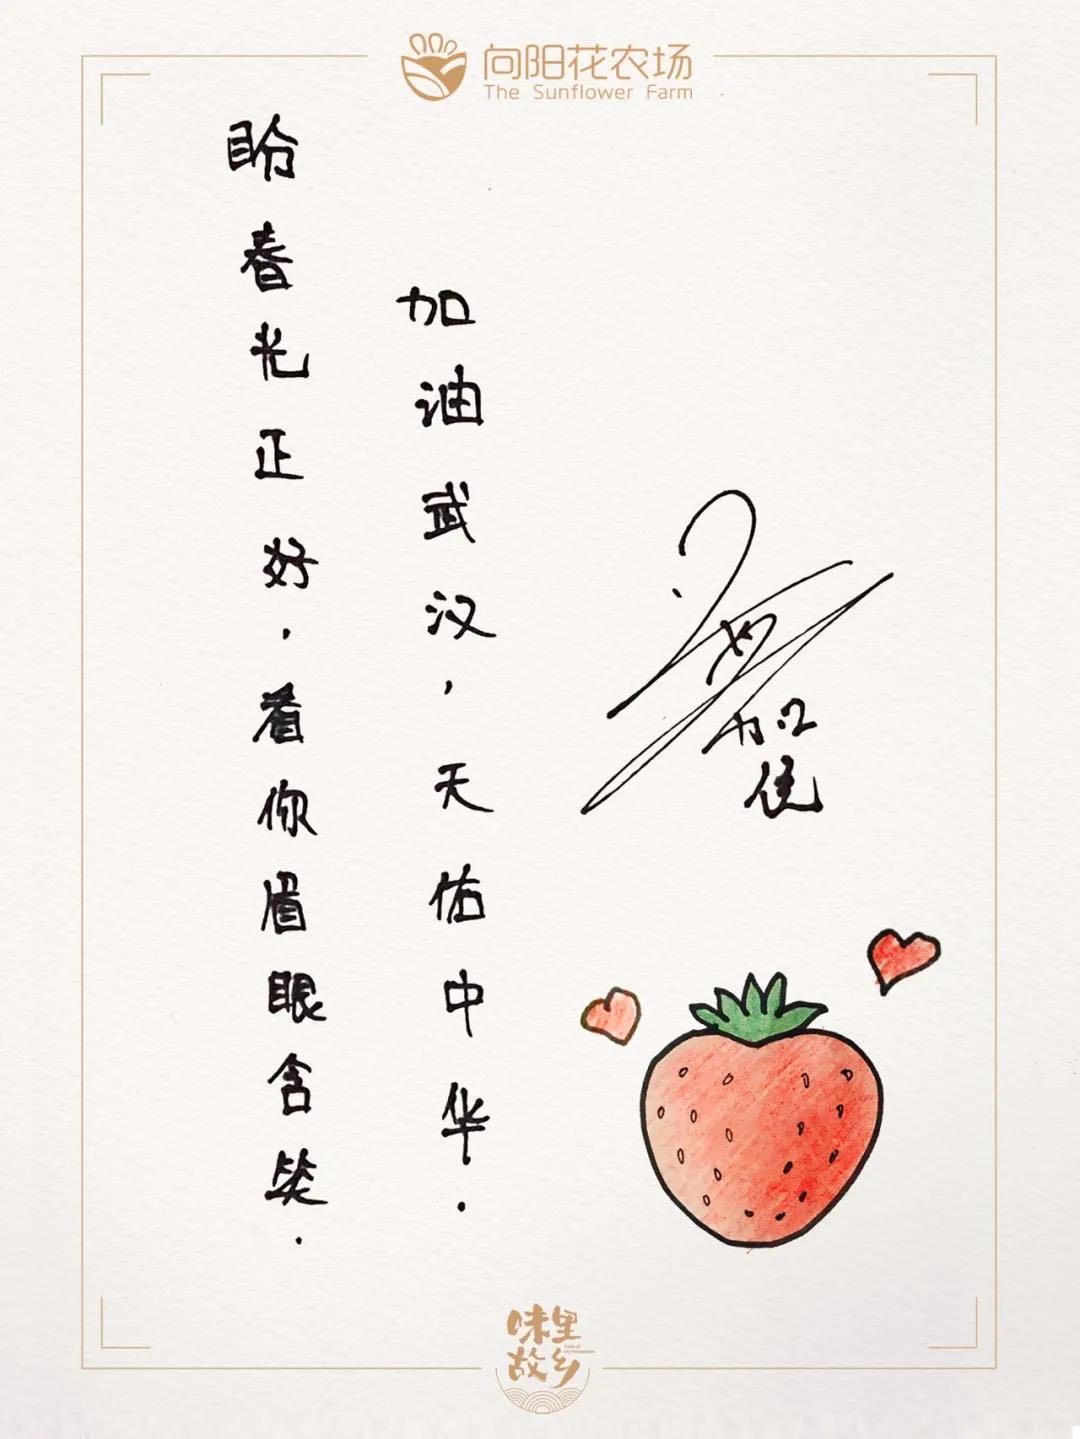 向阳花农场
The Sunflower Farm
盼春光正好.着你眉眼含笑.
加油武汉,天佑中华.
味里
故乡